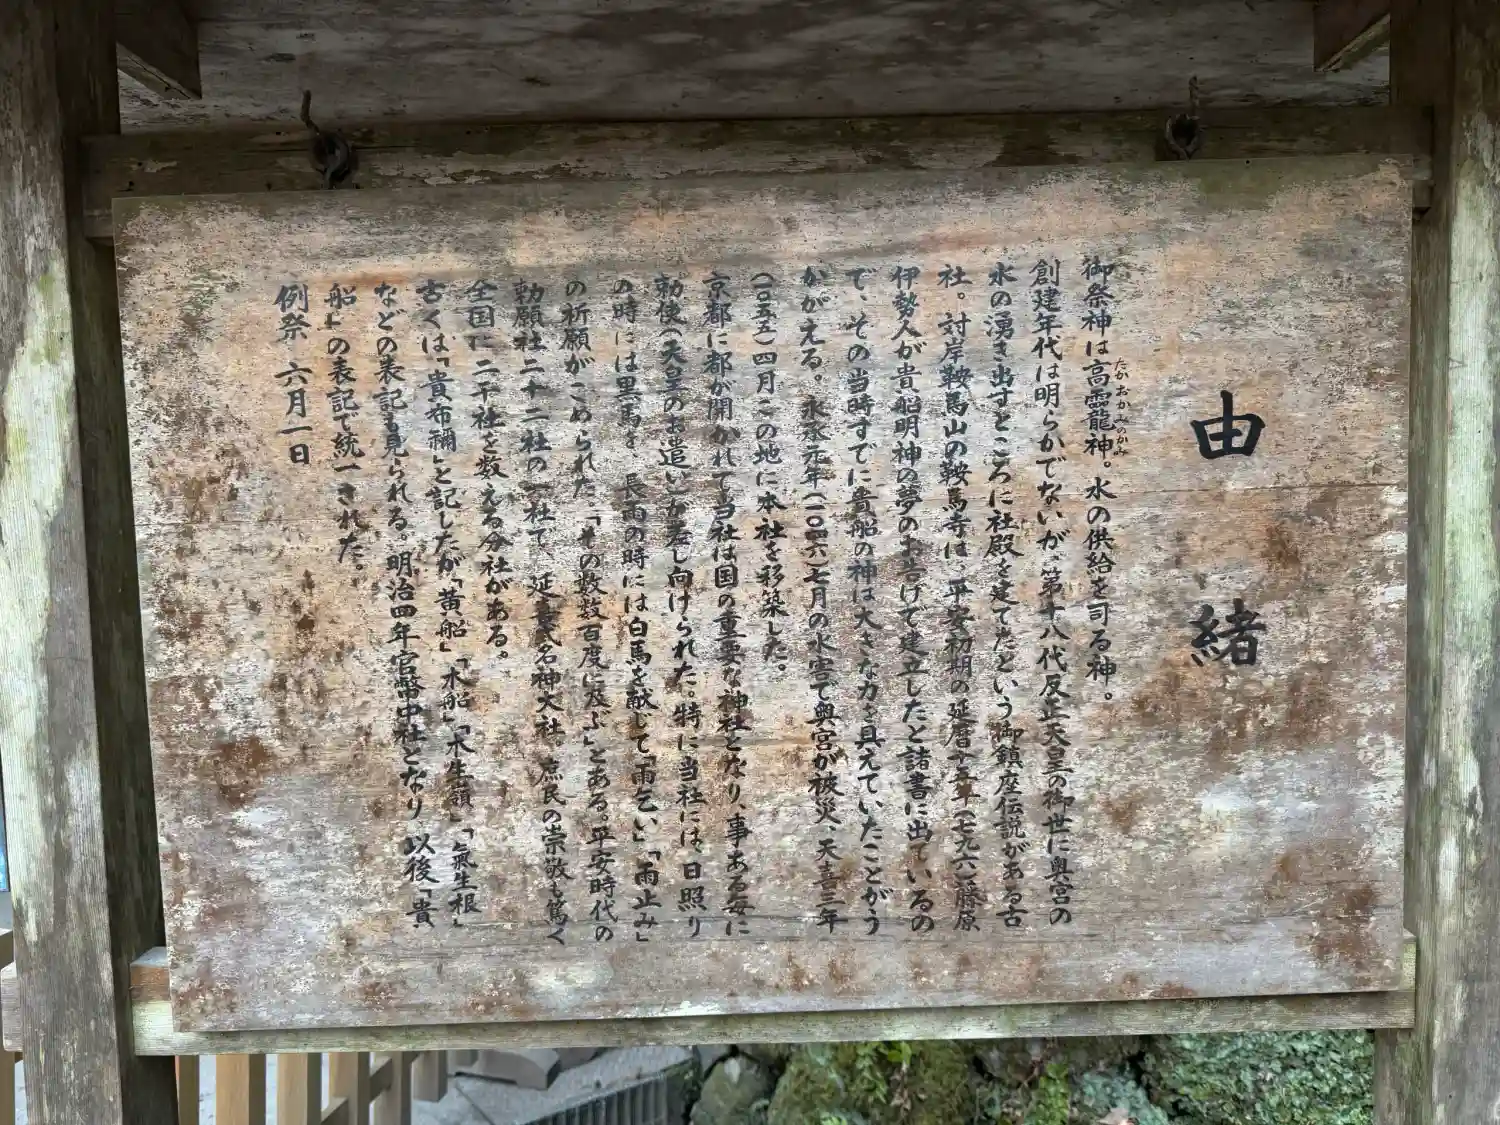 由緒
たかおかみのかみ
御祭神は高龗龍神。水の供給を司る神。
創建年代は明らかでないが、第十八代反正天皇の御世に奥宮の
水の湧き出すところに社殿を建てたという御鎮座伝説がある古
社。対岸鞍馬山の鞍馬寺は、平安初期の延暦十五年(七九六)藤原
伊勢人が貴船明神の夢のお告げで建立したと諸書に出ているの
で、その当時すでに貴船の神は大きな力を具えていたことがう
かがえる。永承元年(一〇四六)七月の水害で奥宮が被災、天喜三年
(一〇五五)四月この地に本社を移築した。
京都に都が開かれて当社は国の重要な神社となり、事ある毎に
勅使(天皇のお遣い)が差し向けられた。特に当社には、日照り
の時には黒馬を、長雨の時には白馬を献じて「雨乞い」「雨止み」
の祈願がこめられた「その数数百度に及ぶ」とある。平安時代の
勅願社二十二社の一社で、延喜式名神大社。庶民の崇敬も篤く
全国に二千社を数える分社がある。
古くは「貴布禰」と記したが「黄船」「木船」「木生嶺」「氣生根」
などの表記も見られる。明治四年官幣中社となり以後「貴
船」の表記で統一された。
例祭 六月一日